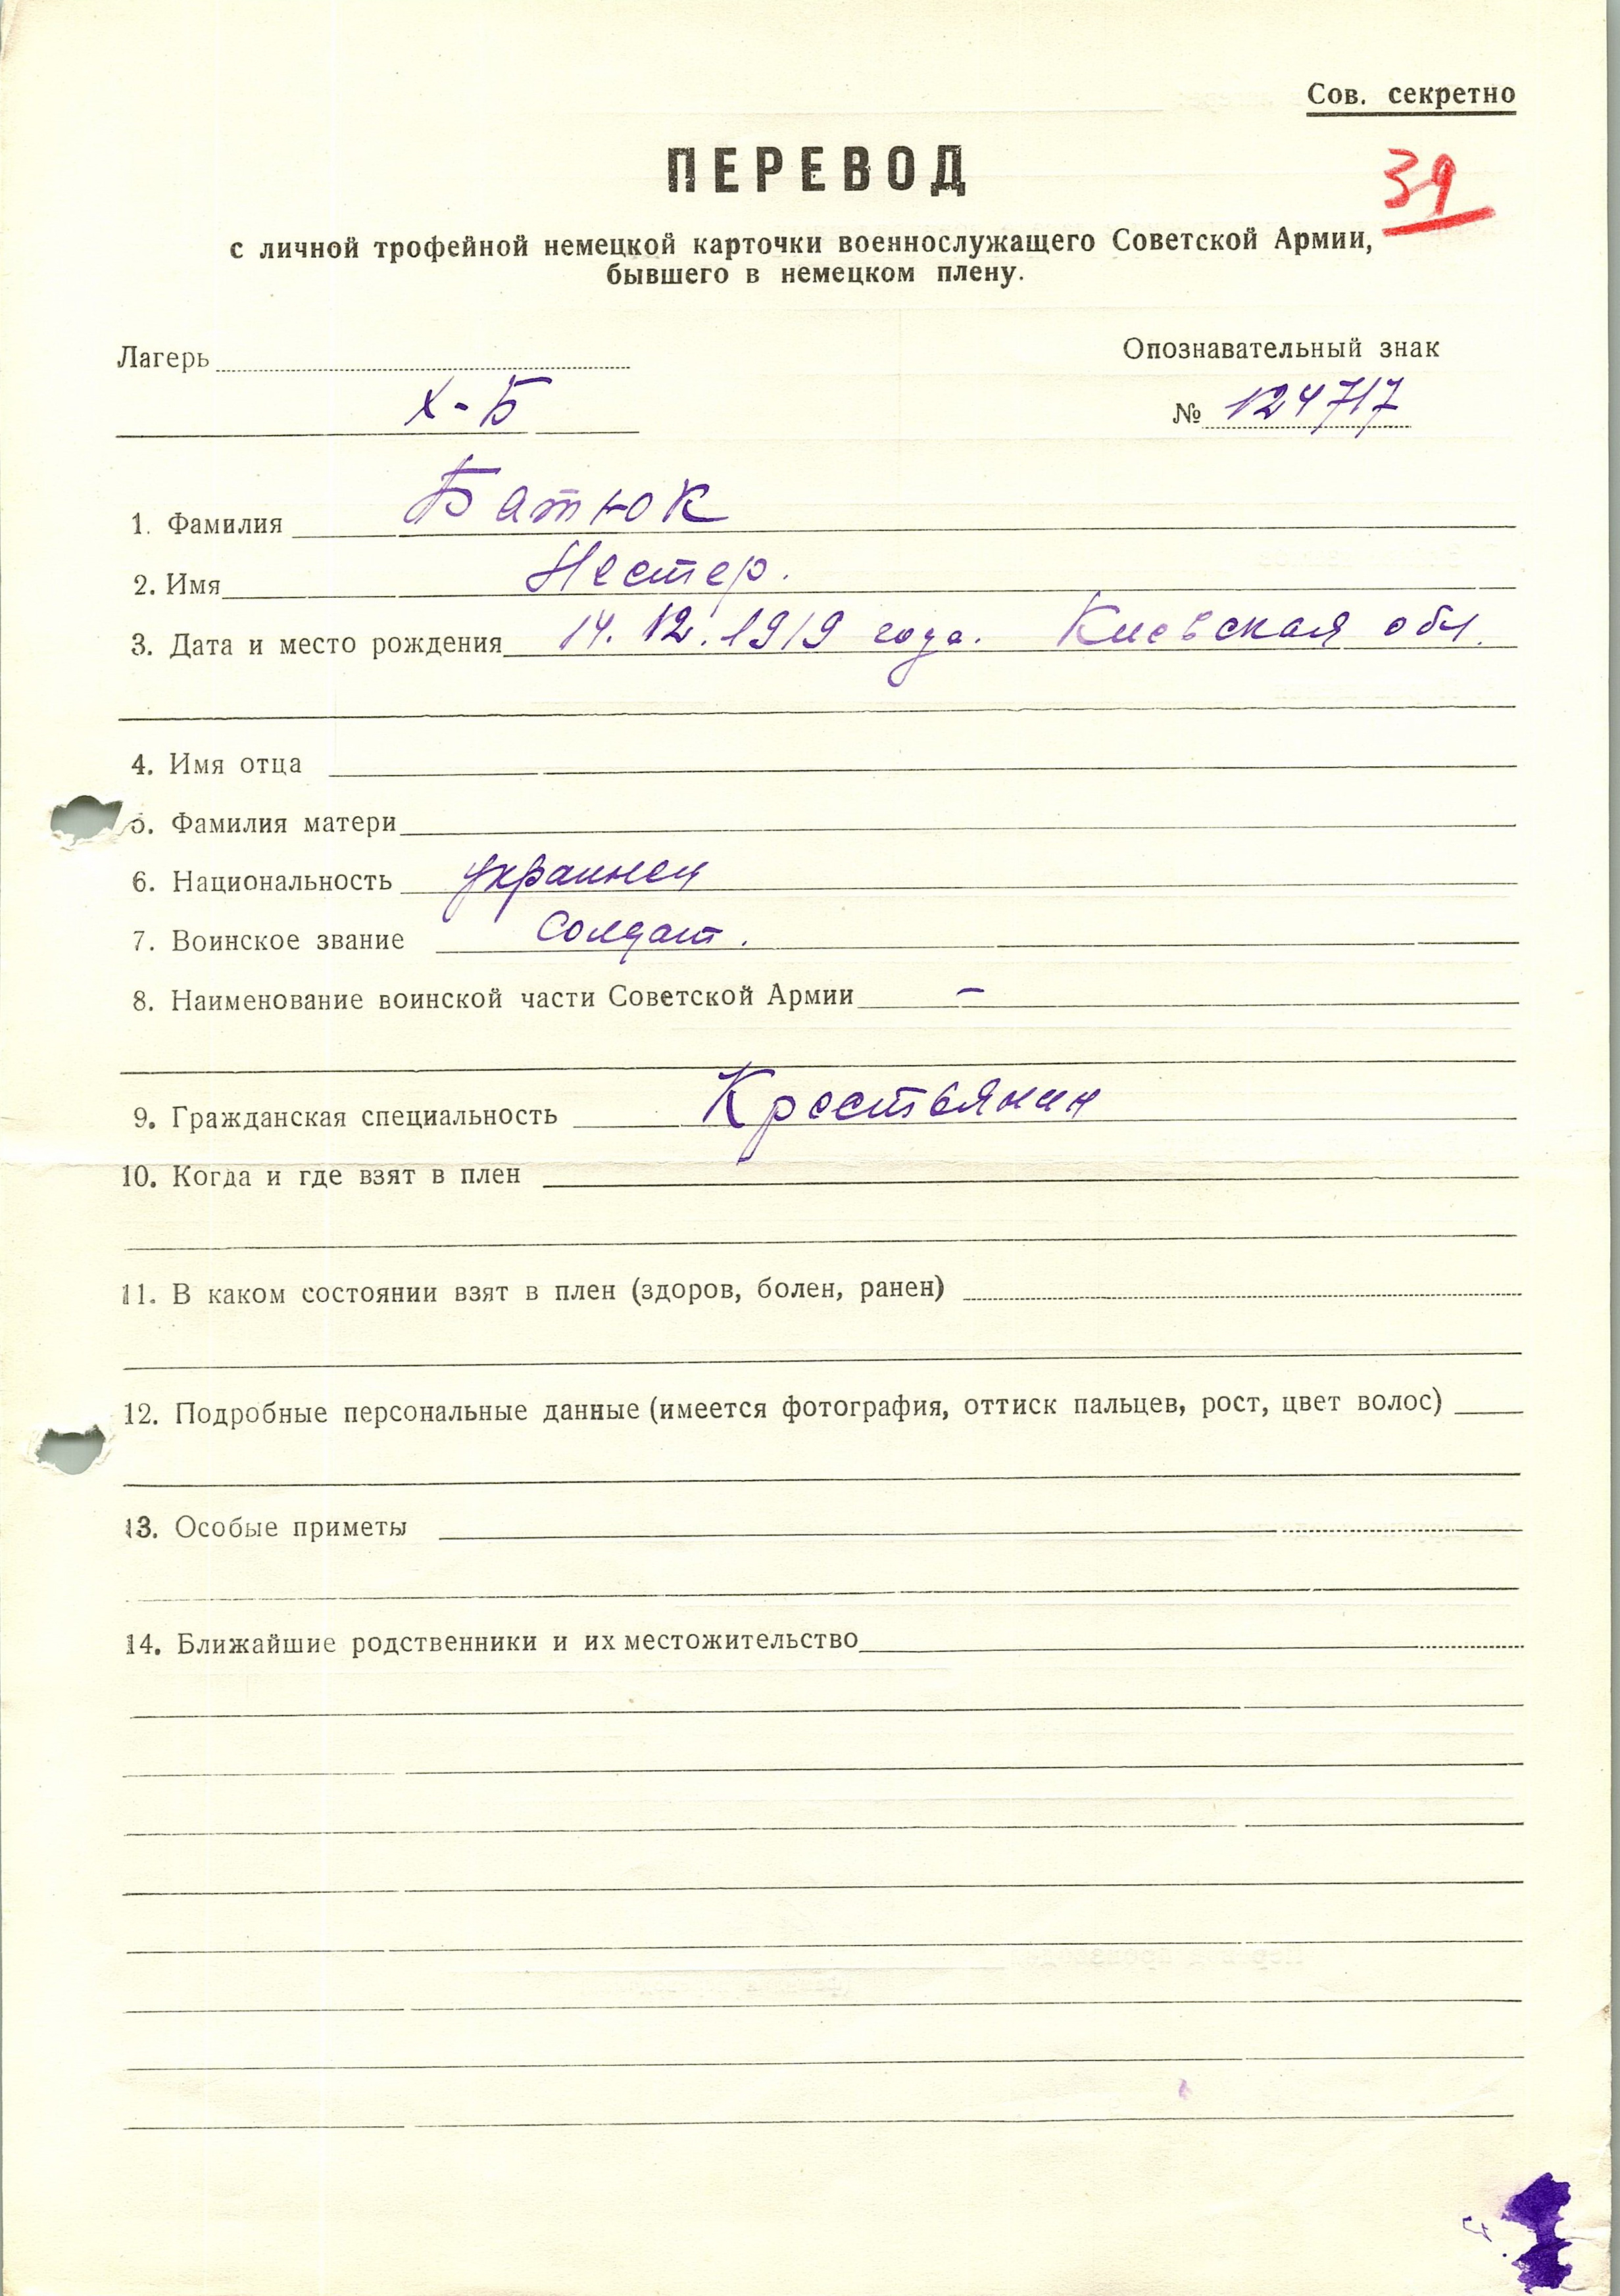 Сов. секретно
ПЕРЕВОД
39
с личной трофейной немецкой карточки военнослужащего Советской Армии,
бывшего в немецком плену.
Лагерь
Опознавательный знак
Х-Б
№ 124717
1. Фамилия Батюк
2. Имя Нестер.
3. Дата и место рождения 14.12.1919 года. Киевская обл.
4. Имя отца
5. Фамилия матери
6. Национальность украинец
7. Воинское звание солдат.
8. Наименование воинской части Советской Армии –
9. Гражданская специальность Крестьянин
10. Когда и где взят в плен
11. В каком состоянии взят в плен (здоров, болен, ранен)
12. Подробные персональные данные (имеется фотография, оттиск пальцев, рост, цвет волос)
13. Особые приметы
14. Ближайшие родственники и их местожительство